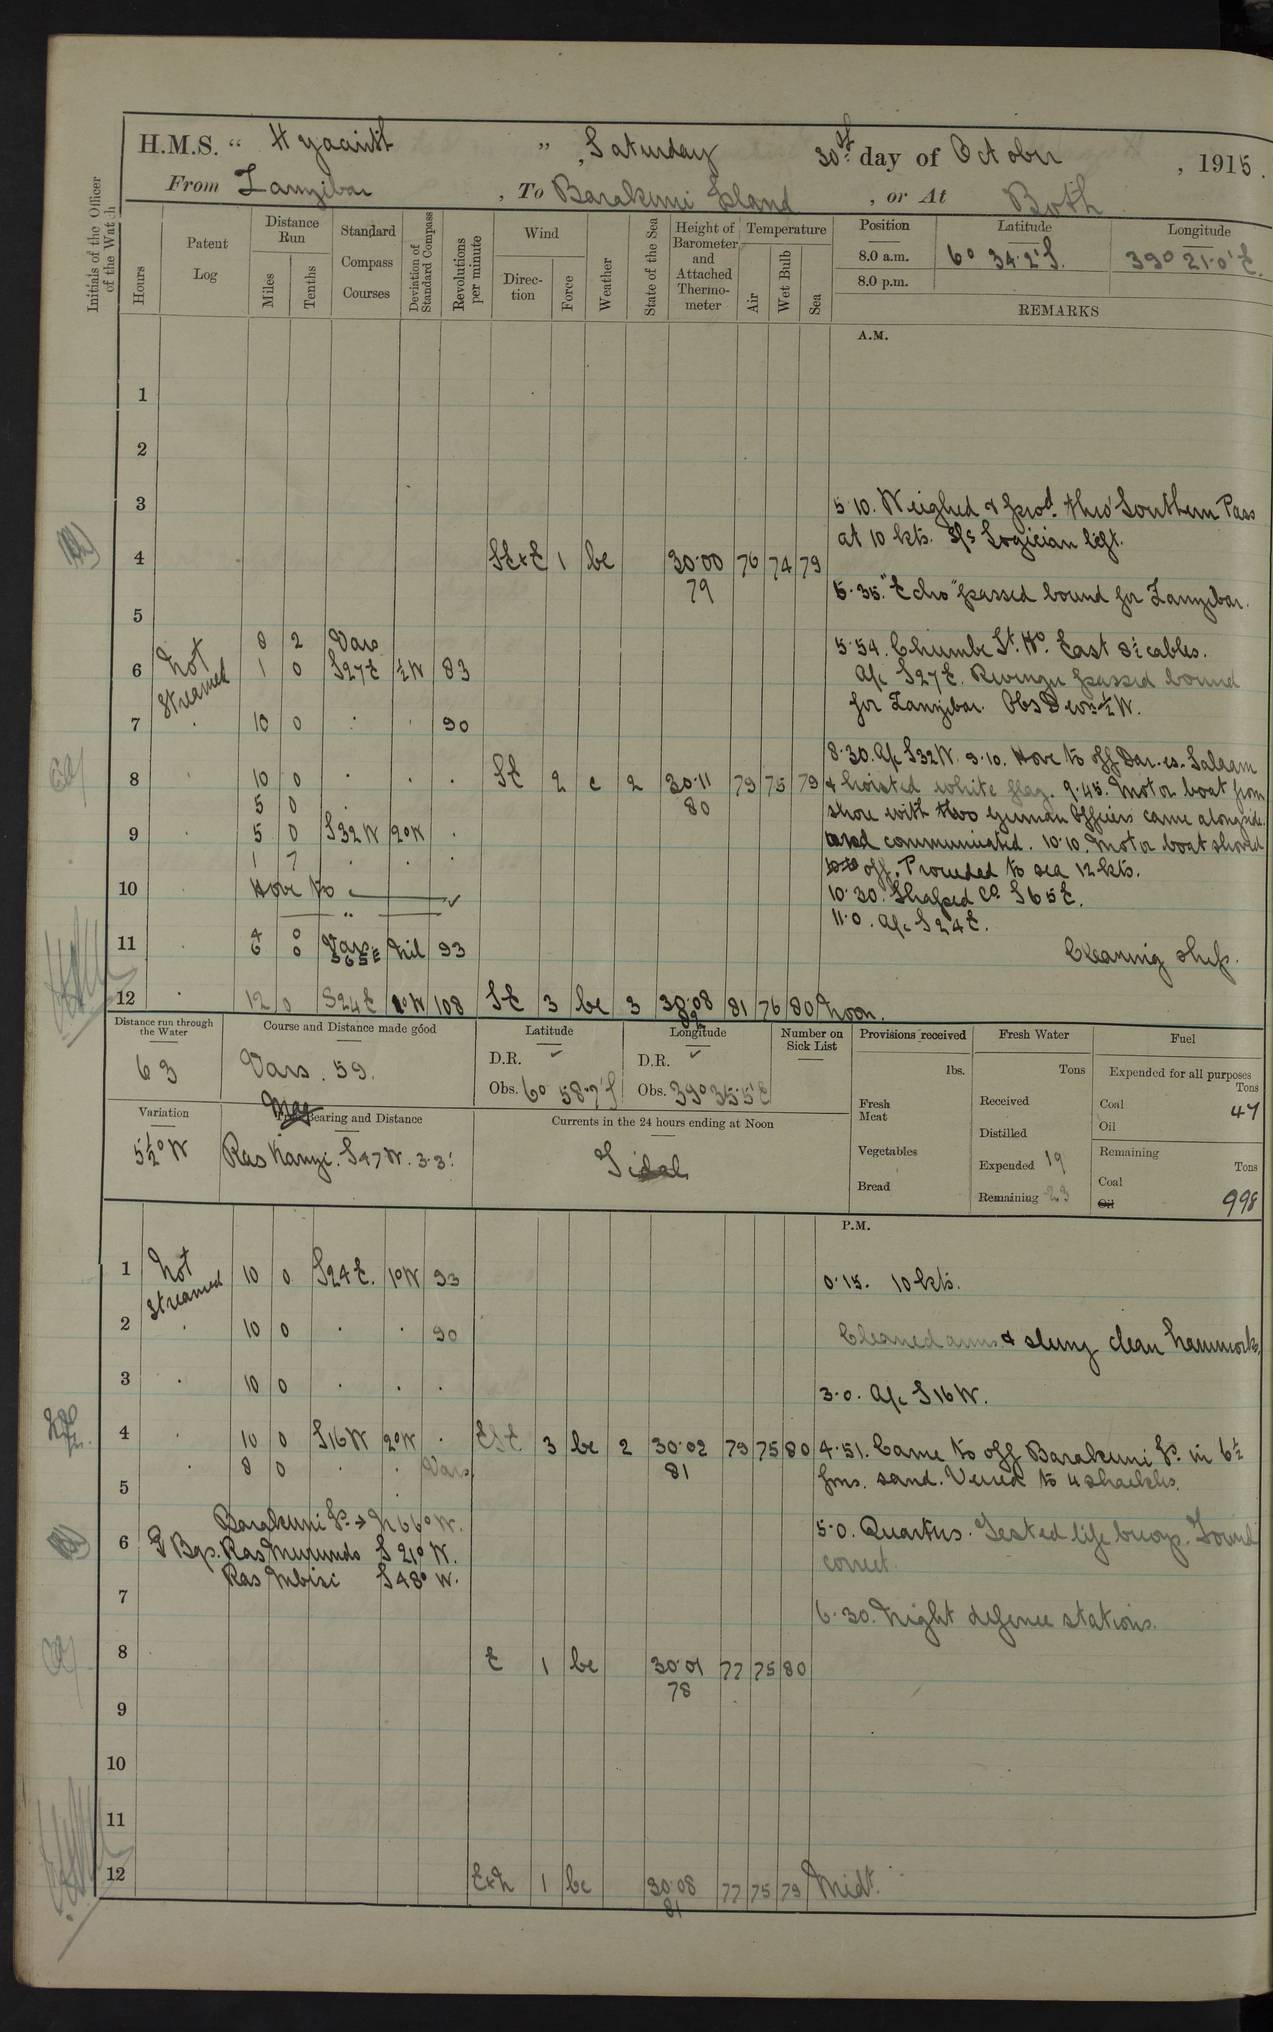 H.M.S. “ Hyacinth ” , Saturday 30th day of October , 1915.
From Zanzibar , To Barakuni Island , or At Both
Initials of the Officer of the Watch
Hours
Patent Log
Distance Run
Miles
Tenths
Standard Compass Courses
Deviation of Standard Compass
Revolutions per minute
Wind
Direction
Force
Weather
State of the Sea
Height of Barometer and Attached Thermometer
Temperature
Air
Wet Bulb
Sea
Position
Latitude
Longitude
8.0 a.m. 6° 34·2' S. 39° 21·0' E.
8.0 p.m.
REMARKS
A.M.
1
2
3
5·10. Weighed & procd. thro' Southern Pass
at 10 kts. S/s Logician left.
4 SE×E 1 bc 30·00 76 74 79
79
5·35. "Echo" passed bound for Zanzibar.
5
8 2 Vars
5·54. Chumbe Lt. Ho. East 8½ cables.
6 Not Streamed 1 0 S27E ½W 83
A/c S27E. Revenge passed bound
for Zanzibar. Obs Devn ½W.
7 10 0 90
8·30. A/c S32W. 9·10. Hove to off Dar-es-Salaam
8 10 0 SE 2 c 2 30·11 79 75 79
80
& hoisted white flag. 9·45. Motor boat from
5 0
shore with two German Officers came alongside
9 5 0 S32W 2°W
and communicated. 10·10. Motor boat shoved
1 7
off. Proceeded to sea 12 kts.
10 Hove to
10·30. Shaped Co. S65E.
11·0. A/c S24E.
4 0 Vars Nil 93
11 6 0 S65E
Cleaning ship.
12 12 0 S24E 1°W 108 SE 3 bc 3 30·08 81 76 80 Noon.
82
Distance run through the Water
63
Course and Distance made good
Vars. 59.
Latitude
D.R. ✓
Obs. 6° 58·7' S
Longitude
D.R. ✓
Obs. 39° 35·5' E
Number on Sick List
Provisions received
lbs.
Fresh Meat
Vegetables
Bread
Fresh Water
Tons
Received
Distilled
Expended 19
Remaining 23
Fuel
Expended for all purposes
Tons
Coal 47
Oil
Remaining
Tons
Coal 998
Oil
Variation
5½° W
Mag
True Bearing and Distance
Ras Kanzi. S47W. 3·3'.
Currents in the 24 hours ending at Noon
Tidal
P.M.
1 Not Streamed 10 0 S24E. 1°W 93
0·15. 10 kts.
2 10 0 90
Cleaned arms & slung clean hammocks.
3 10 0
3·0. A/c S16W.
4 10 0 S16W 2°W ESE 3 bc 2 30·02 79 75 80
81
8 0 Vars
4·51. Came to off Barakuni Id. in 6½
fms. sand. Veered to 4 shackles.
5
Barakuni Id. → N66°W.
5·0. Quarters. Tested life buoys. Found
correct.
6 Bgs. Ras Murundo S 21° W.
Ras Mbisi S 48° W.
7
6·30. Night defence stations.
8 E 1 bc 30·01 77 75 80
78
9
10
11
12 E×N 1 bc 30·08 77 75 79 Midt.
81